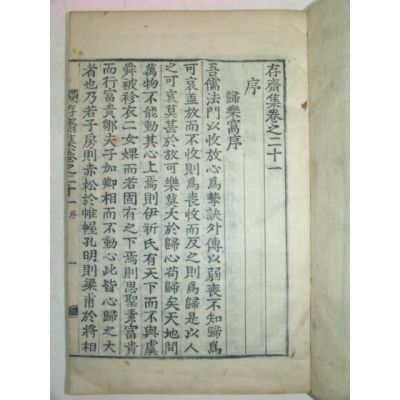 存齋集卷之二十一
序
歸樂窩序
吾儒法門以收放心爲摯訣外傳以弱喪不知歸爲
可哀盖放而不收則爲喪收而反之則爲歸是以
之可哀莫甚於放可樂莫大於歸心苟歸矣天地間
萬物不能動其心上焉則伊祈氏有天下而不與虞
舜被袗衣二女婐而若固有之下焉則思聖素富貴
而行富貴鄒夫子加卿相而不動心此皆心歸之大
者也乃若子房則赤松於帷幄孔明則梁甫於將相
存齋集卷之二十一 序 一